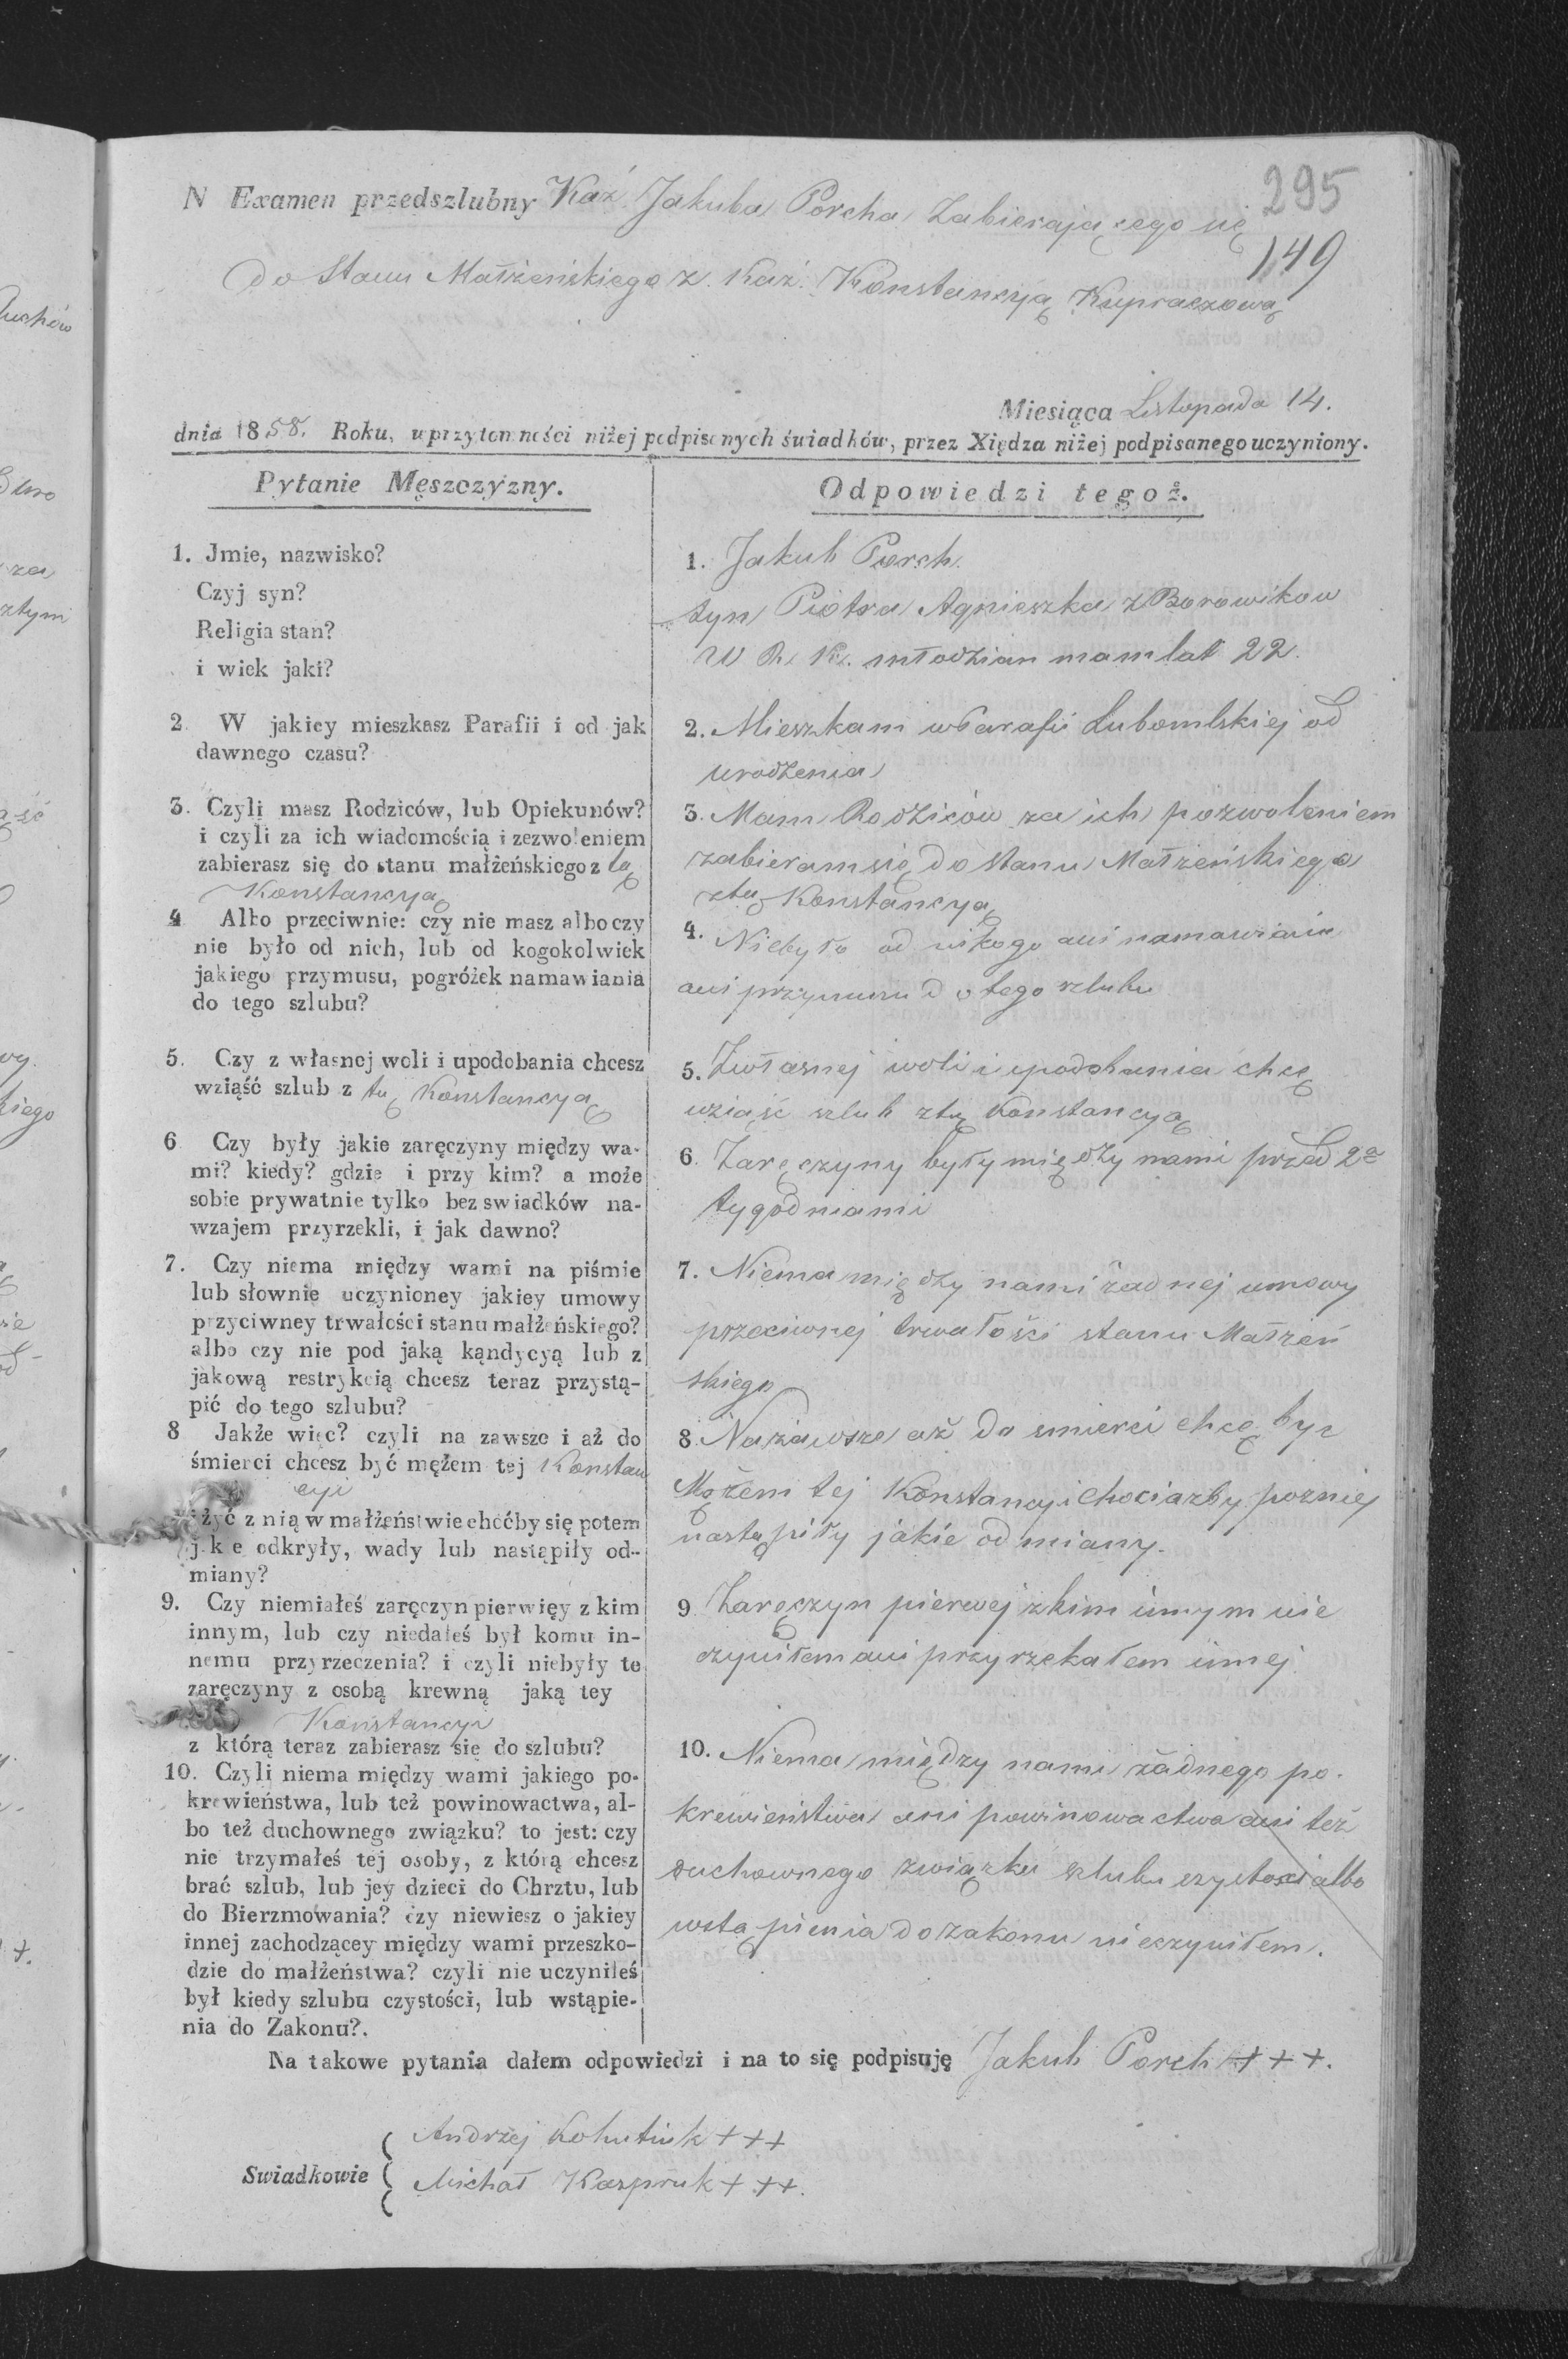 295
N Examen przedszlubny Kaź Jakuba Porcha Zabierającego się
149
do Stanu Małżeńskiego z. Kaź. Konstancyją Kupraczową
Miesiąca Listopada 14.
dnia 1858. Roku, w przytomności niżej podpisanych świadków, przez Xiędza niżej podpisanego uczyniony.
Pytanie Męszczyzny.
1. Jmie, nazwisko?
Czyj syn?
Religia stan?
i wiek jaki?
2 W jakiey mieszkasz Parafii i od jak
dawnego czasu?
3. Czyli masz Rodziców, lub Opiekunów?
i czyli za ich wiadomością i zezwoleniem
zabierasz się do stanu małżeńskiego z tą
Konstancyą
4 Albo przeciwnie: czy nie masz albo czy
nie było od nich, lub od kogokolwiek
jakiego przymusu, pogróżek namawiania
do tego szlubu?
5. Czy z własnej woli i upodobania chcesz
wziąść szlub z tą Konstancyą
6 Czy były jakie zaręczyny między wa-
mi? kiedy? gdzie i przy kim? a może
sobie prywatnie tylko bez swiadków na-
wzajem przyrzekli, i jak dawno?
7. Czy niema między wami na piśmie
lub słownie uczynioney jakiey umowy
przyciwney trwałości stanu małżeńskiego?
albo czy nie pod jaką kąndycyą lub z
jakową restrykcią chcesz teraz przystą-
pić do tego szlubu?
8 Jakże więc? czyli na zawsze i aż do
śmierci chcesz być mężem tej Konstan
cyi
żyć z nią w małżeństwie choćby się potem
jakie odkryły, wady lub nastąpiły od-
miany?
9. Czy niemiałeś zaręczyn pierwięy z kim
innym, lub czy niedałeś był komu in-
nemu przyrzeczenia? i czyli niebyły te
zaręczyny z osobą krewną jaką tey
Konstancyi
z którą teraz zabierasz się do szlubu?
10. Czyli niema między wami jakiego po-
krewieństwa, lub też powinowactwa, al-
bo też duchownego związku? to jest: czy
nie trzymałeś tej osoby, z którą chcesz
brać szlub, lub jey dzieci do Chrztu, lub
do Bierzmowania? czy niewiesz o jakiey
innej zachodzącey między wami przeszko-
dzie do małżeństwa? czyli nie uczyniłeś
był kiedy szlubu czystości, lub wstąpie-
nia do Zakonu?.
Odpowiedzi tegoż.
1. Jakub Porch
syn Piotra Agnieszka z Borowikow
W R. K. młodzian mam lat 22.
2. Mieszkam w Parafii Lubomlskiej od
urodzenia
3. Mam Rodziców za ich pozwoleniem
zabieram się do stanu Małżeńskiego
z tą Konstancyą
4. Niebyło od nikogo ani namawiania
ani przymusu do tego szlubu
5. Zwłasnej woli i upodobania chcę
wziąść szlub z tą Konstancyą
6. Zaręczyny były między nami przed 2a
tygodniami
7. Niema między nami żadnej umowy
przeciwnej trwałości stanu Małżeń
skiego
8. Nazawsze aż do smierci chcę byc
Mężem tej Konstancyi chociażby pozniej
nastąpiły jakie odmiany.
9 Zaręczyn pierwej z kim innym nie
czyniłem ani przyrzekałem innej
10. Niema między nami żadnego po-
krewieństwa ani powinowactwa ani też
duchownego związku szlubu czystości albo
wstąpienia do zakonu nieczyniłem.
Na takowe pytania dałem odpowiedzi i na to się podpisuję Jakub Porch +++.
Swiadkowie
Andrzej Kohutiuk +++
Michał Kaspruk +++.